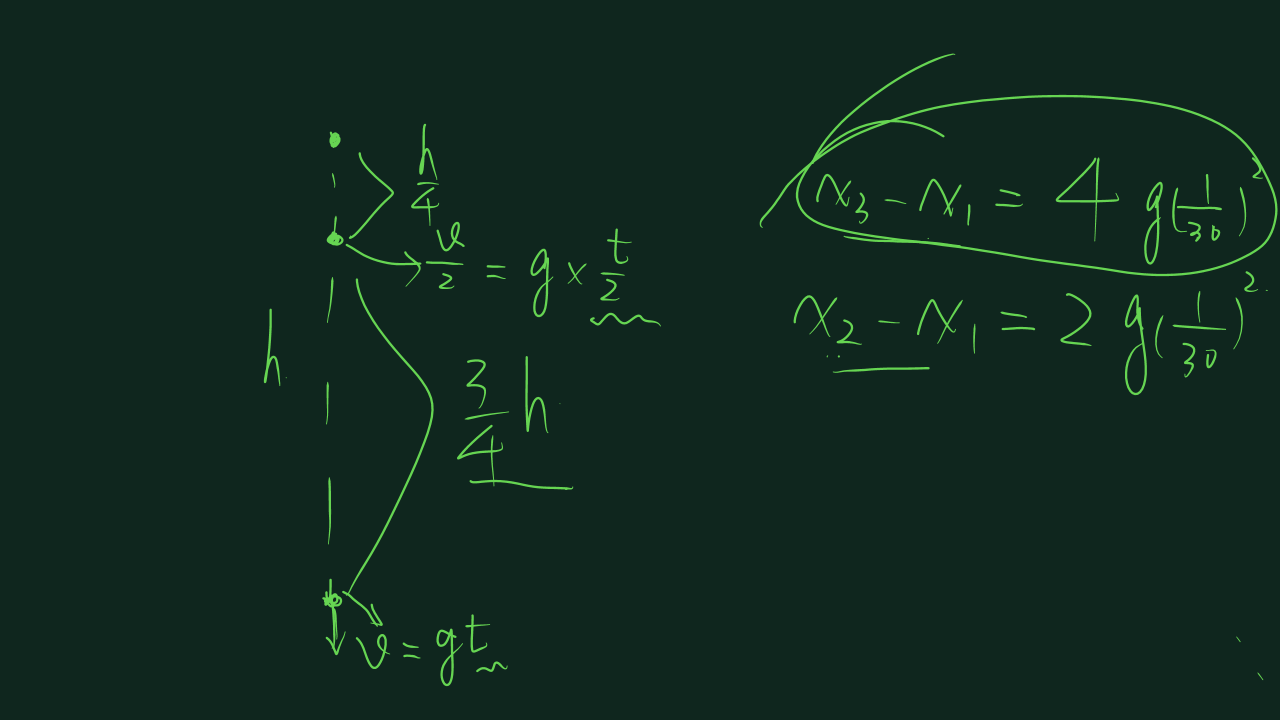 h/4
v/2 = g × t/2
h
3/4 h
v = gt
x₃ - x₁ = 4 g(1/30)²
x₂ - x₁ = 2 g(1/30)²